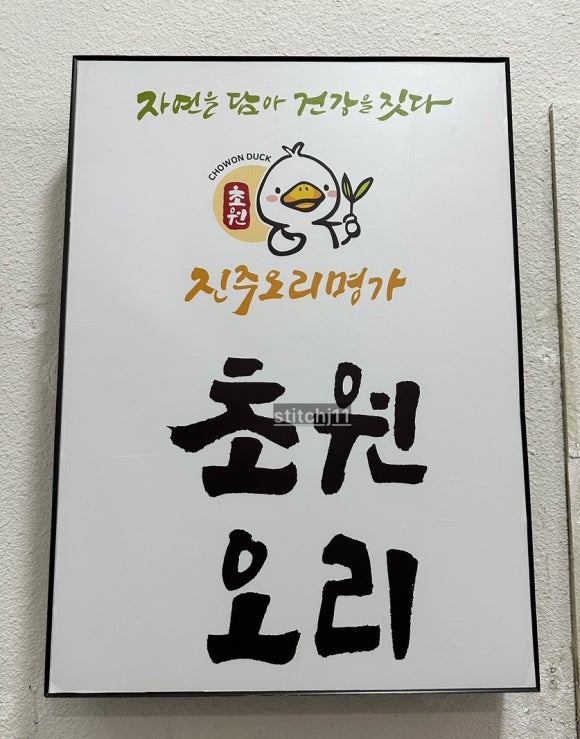 자연을 담아 건강을 짓다
CHOWON DUCK
초원
진주오리명가
초원
stitchj11
오리